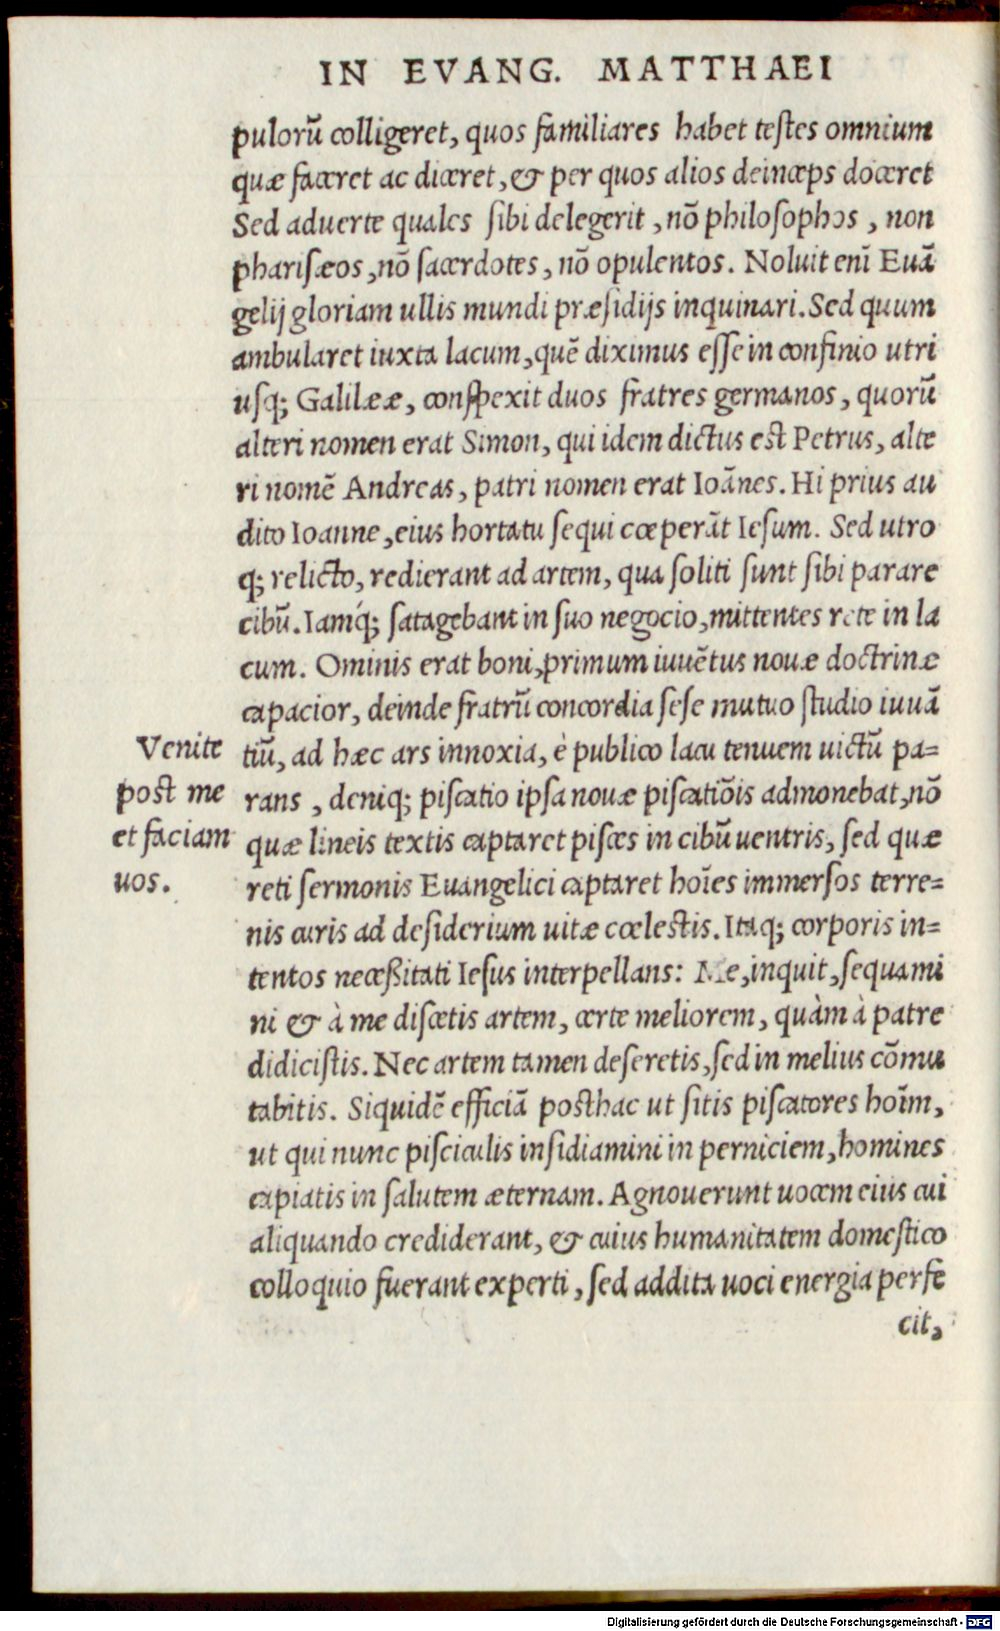 IN EVANG. MATTHAEI
pulorũ colligeret, quos familiares habet testes omnium
quæ faceret ac diceret, & per quos alios deinceps doceret
Sed aduerte quales sibi delegerit, nõ philosophos, non
pharisæos, nõ sacerdotes, nõ opulentos. Noluit enĩ Euã
gelij gloriam ullis mundi præsidijs inquinari. Sed quum
ambularet iuxta lacum, quẽ diximus esse in confinio utri
usq; Galilææ, conspexit duos fratres germanos, quorũ
alteri nomen erat Simon, qui idem dictus est Petrus, alte
ri nomẽ Andreas, patri nomen erat Ioãnes. Hi prius au
dito Ioanne, eius hortatu sequi cœperãt Iesum. Sed utro
q; relicto, redierant ad artem, qua soliti sunt sibi parare
cibũ. Iamq́; satagebant in suo negocio, mittentes rete in la
cum. Ominis erat boni, primum iuuẽtus nouæ doctrinæ
capacior, deinde fratrũ concordia sese mutuo studio iuuã
tiũ, ad hæc ars innoxia, è publico lacu tenuem uictũ pa=
rans, deniq; piscatio ipsa nouæ piscatiõis admonebat, nõ
quæ lineis textis captaret pisces in cibũ uentris, sed quæ
reti sermonis Euangelici captaret hoĩes immersos terre=
nis curis ad desiderium uitæ cœlestis. Itaq; corporis in=
tentos neceßitati Iesus interpellans: Me, inquit, sequami
ni & à me discetis artem, certe meliorem, quàm à patre
didicistis. Nec artem tamen deseretis, sed in melius cõmu
tabitis. Siquidẽ efficiã posthac ut sitis piscatores hoĩm,
ut qui nunc pisciculis insidiamini in perniciem, homines
capiatis in salutem æternam. Agnouerunt uocem eius cui
aliquando crediderant, & cuius humanitatem domestico
colloquio fuerant experti, sed addita uoci energia perfe
cit,
Venite
post me
et faciam
uos.
Digitalisierung gefördert durch die Deutsche Forschungsgemeinschaft - DFG